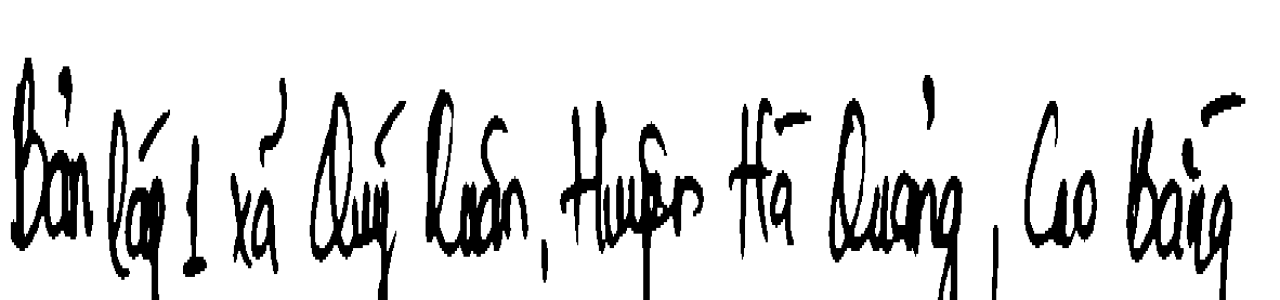 Bản Láp 1 xã Quý Quân, Huyện Hà Quảng, Cao Bằng